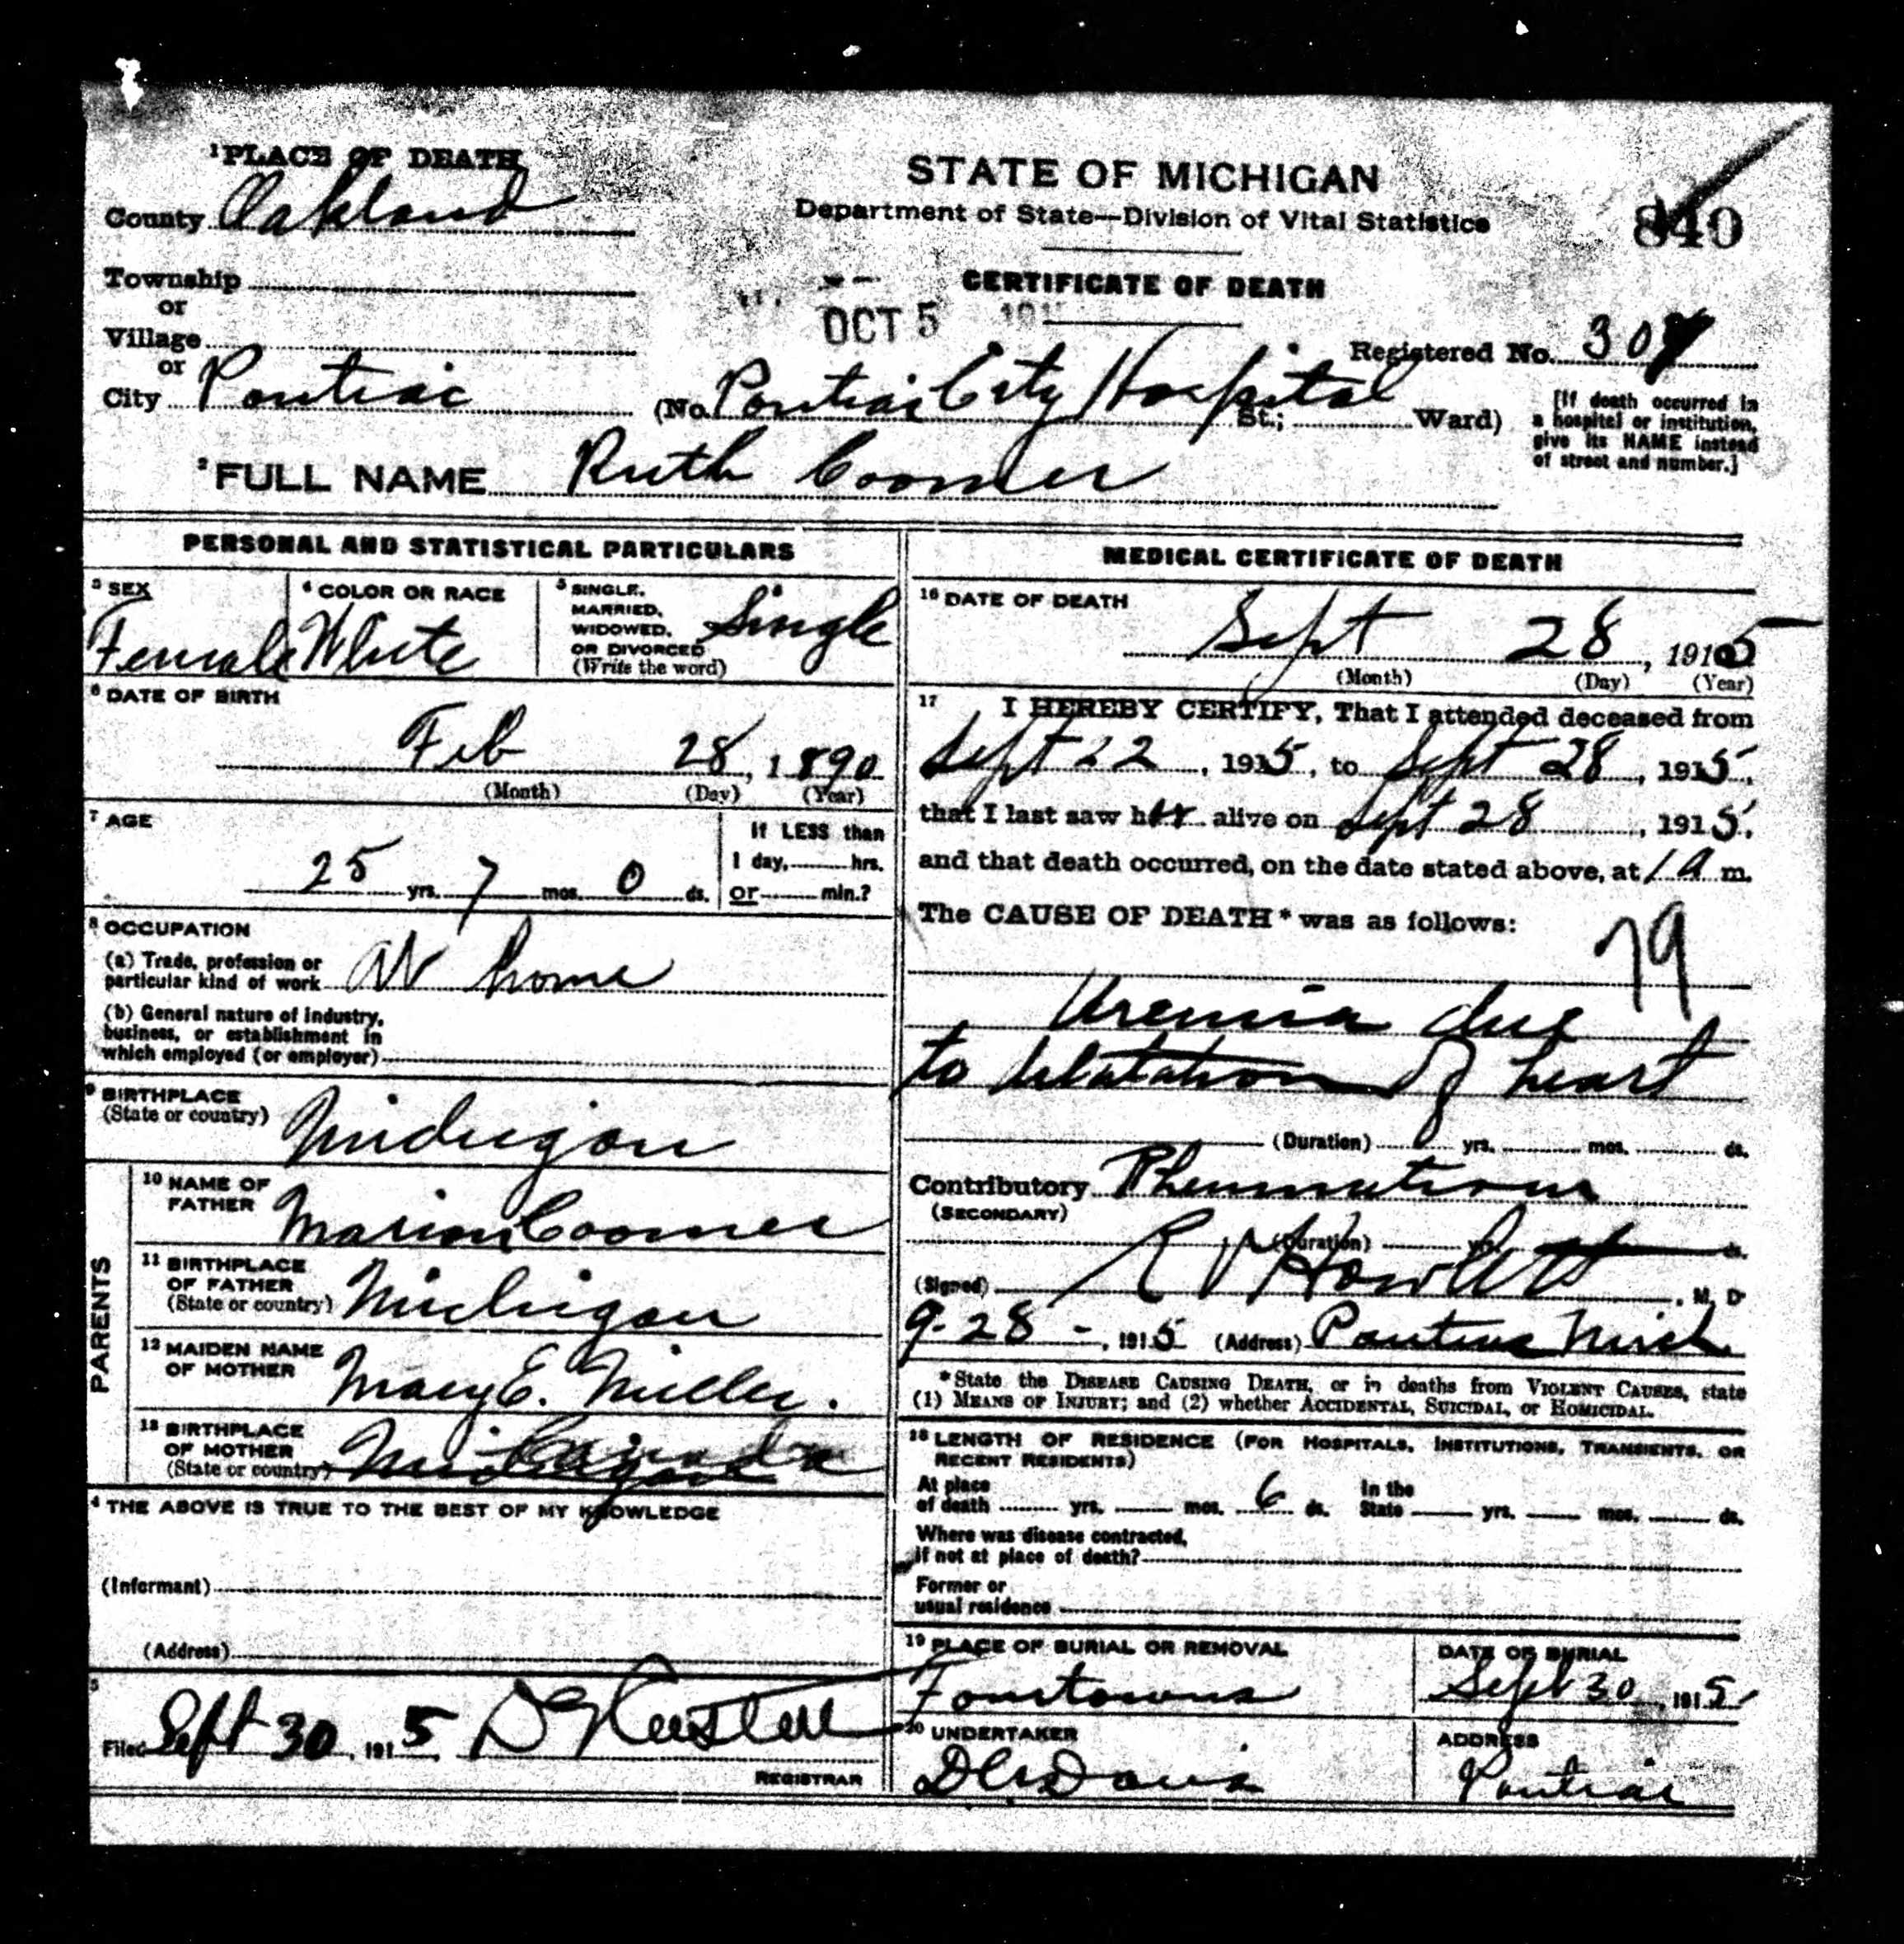 1 PLACE OF DEATH
County Oakland
Township
or
Village
or
City Pontiac
STATE OF MICHIGAN
Department of State—Division of Vital Statistics
840
CERTIFICATE OF DEATH
OCT 5 191
Registered No. 30
(No. Pontiac City Hospital St.; Ward)
[If death occurred in
a hospital or institution,
give its NAME instead
of street and number.]
2 FULL NAME Ruth Coomer
PERSONAL AND STATISTICAL PARTICULARS
3 SEX
Female
4 COLOR OR RACE
White
5 SINGLE,
MARRIED,
WIDOWED,
OR DIVORCED
(Write the word)
Single
6 DATE OF BIRTH
Feb 28, 1890
(Month) (Day) (Year)
7 AGE
25 yrs. 7 mos. 0 ds.
If LESS than
1 day, hrs.
or min.?
8 OCCUPATION
(a) Trade, profession or
particular kind of work At home
(b) General nature of industry,
business, or establishment in
which employed (or employer)
9 BIRTHPLACE
(State or country) Michigan
PARENTS
10 NAME OF
FATHER Marion Coomer
11 BIRTHPLACE
OF FATHER
(State or country) Michigan
12 MAIDEN NAME
OF MOTHER Mary E. Miller.
13 BIRTHPLACE
OF MOTHER
(State or country) Michigan Canada
4 THE ABOVE IS TRUE TO THE BEST OF MY KNOWLEDGE
(Informant)
(Address)
5
Filed Sept 30, 1915
REGISTRAR
MEDICAL CERTIFICATE OF DEATH
16 DATE OF DEATH
Sept 28, 1915
(Month) (Day) (Year)
17 I HEREBY CERTIFY, That I attended deceased from
Sept 22, 1915, to Sept 28, 1915,
that I last saw her alive on Sept 28, 1915,
and that death occurred, on the date stated above, at 1 A m.
The CAUSE OF DEATH* was as follows:
79
Uremia due
to dilatation of heart
(Duration) yrs. mos. ds.
Contributory Rheumatism
(SECONDARY)
(Duration) yrs. ds.
(Signed) R V Howlett, M. D
9-28-, 1915 (Address) Pontiac Mich
*State the DISEASE CAUSING DEATH, or in deaths from VIOLENT CAUSES, state
(1) MEANS OF INJURY; and (2) whether ACCIDENTAL, SUICIDAL, or HOMICIDAL.
18 LENGTH OF RESIDENCE (FOR HOSPITALS, INSTITUTIONS, TRANSIENTS, OR
RECENT RESIDENTS)
At place
of death yrs. mos. 6 ds.
In the
State yrs. mos. ds.
Where was disease contracted,
if not at place of death?
Former or
usual residence
19 PLACE OF BURIAL OR REMOVAL
Fourtowns
DATE OF BURIAL
Sept 30, 1915
20 UNDERTAKER
Davis
ADDRESS
Pontiac